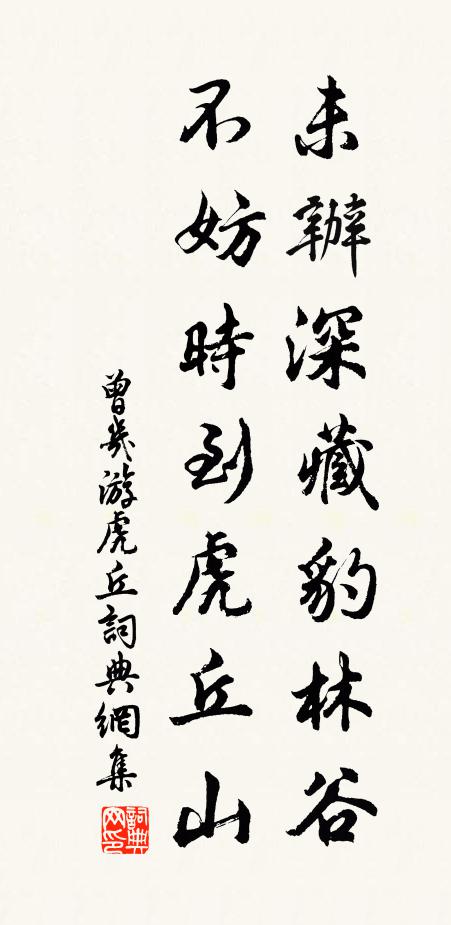 未辦深藏豹林谷
不妨時到虎丘山
曾幾游虎丘詞典網集
詞典网印